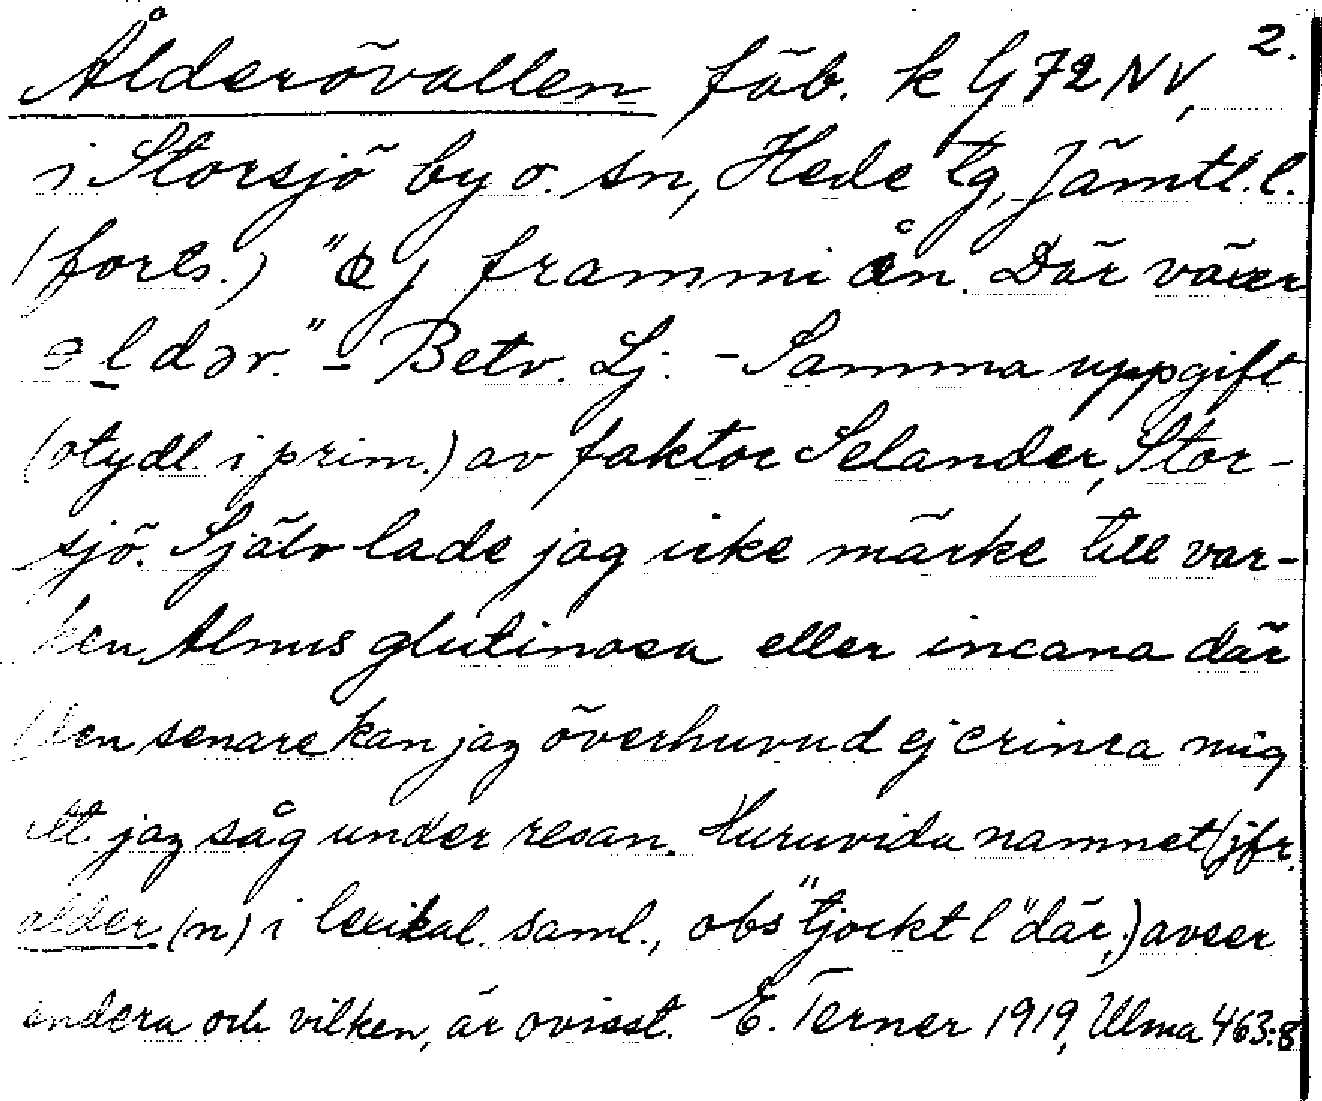 2.
Ålderövallen fäb. k G 72 NV,
i Storsjö by o. sn, Hede tg, Jämtl. l.
(forts.) "Ej frammi ån. Där växer
əldər." – Betv. Lj. – Samma uppgift
(otydl. i prim.) av faktor Selander, Stor-
sjö. Själv lade jag icke märke till var-
ken Alnus glutinosa eller incana där
Den senare kan jag överhuvud ej erinra mig
att jag såg under resan. Huruvida namnet (jfr.
alder (n) i lexikal. saml., obs "tjockt l" där,) avser
endera och vilken, är ovisst. E. Terner 1919, Ulma 463:8